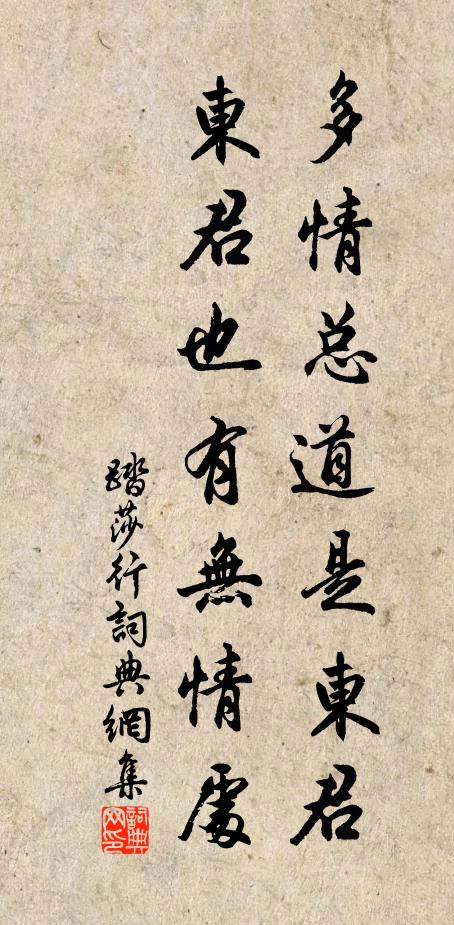 多情总道是東君
東君也有無情處
踏莎行詞典網集
詞典網印